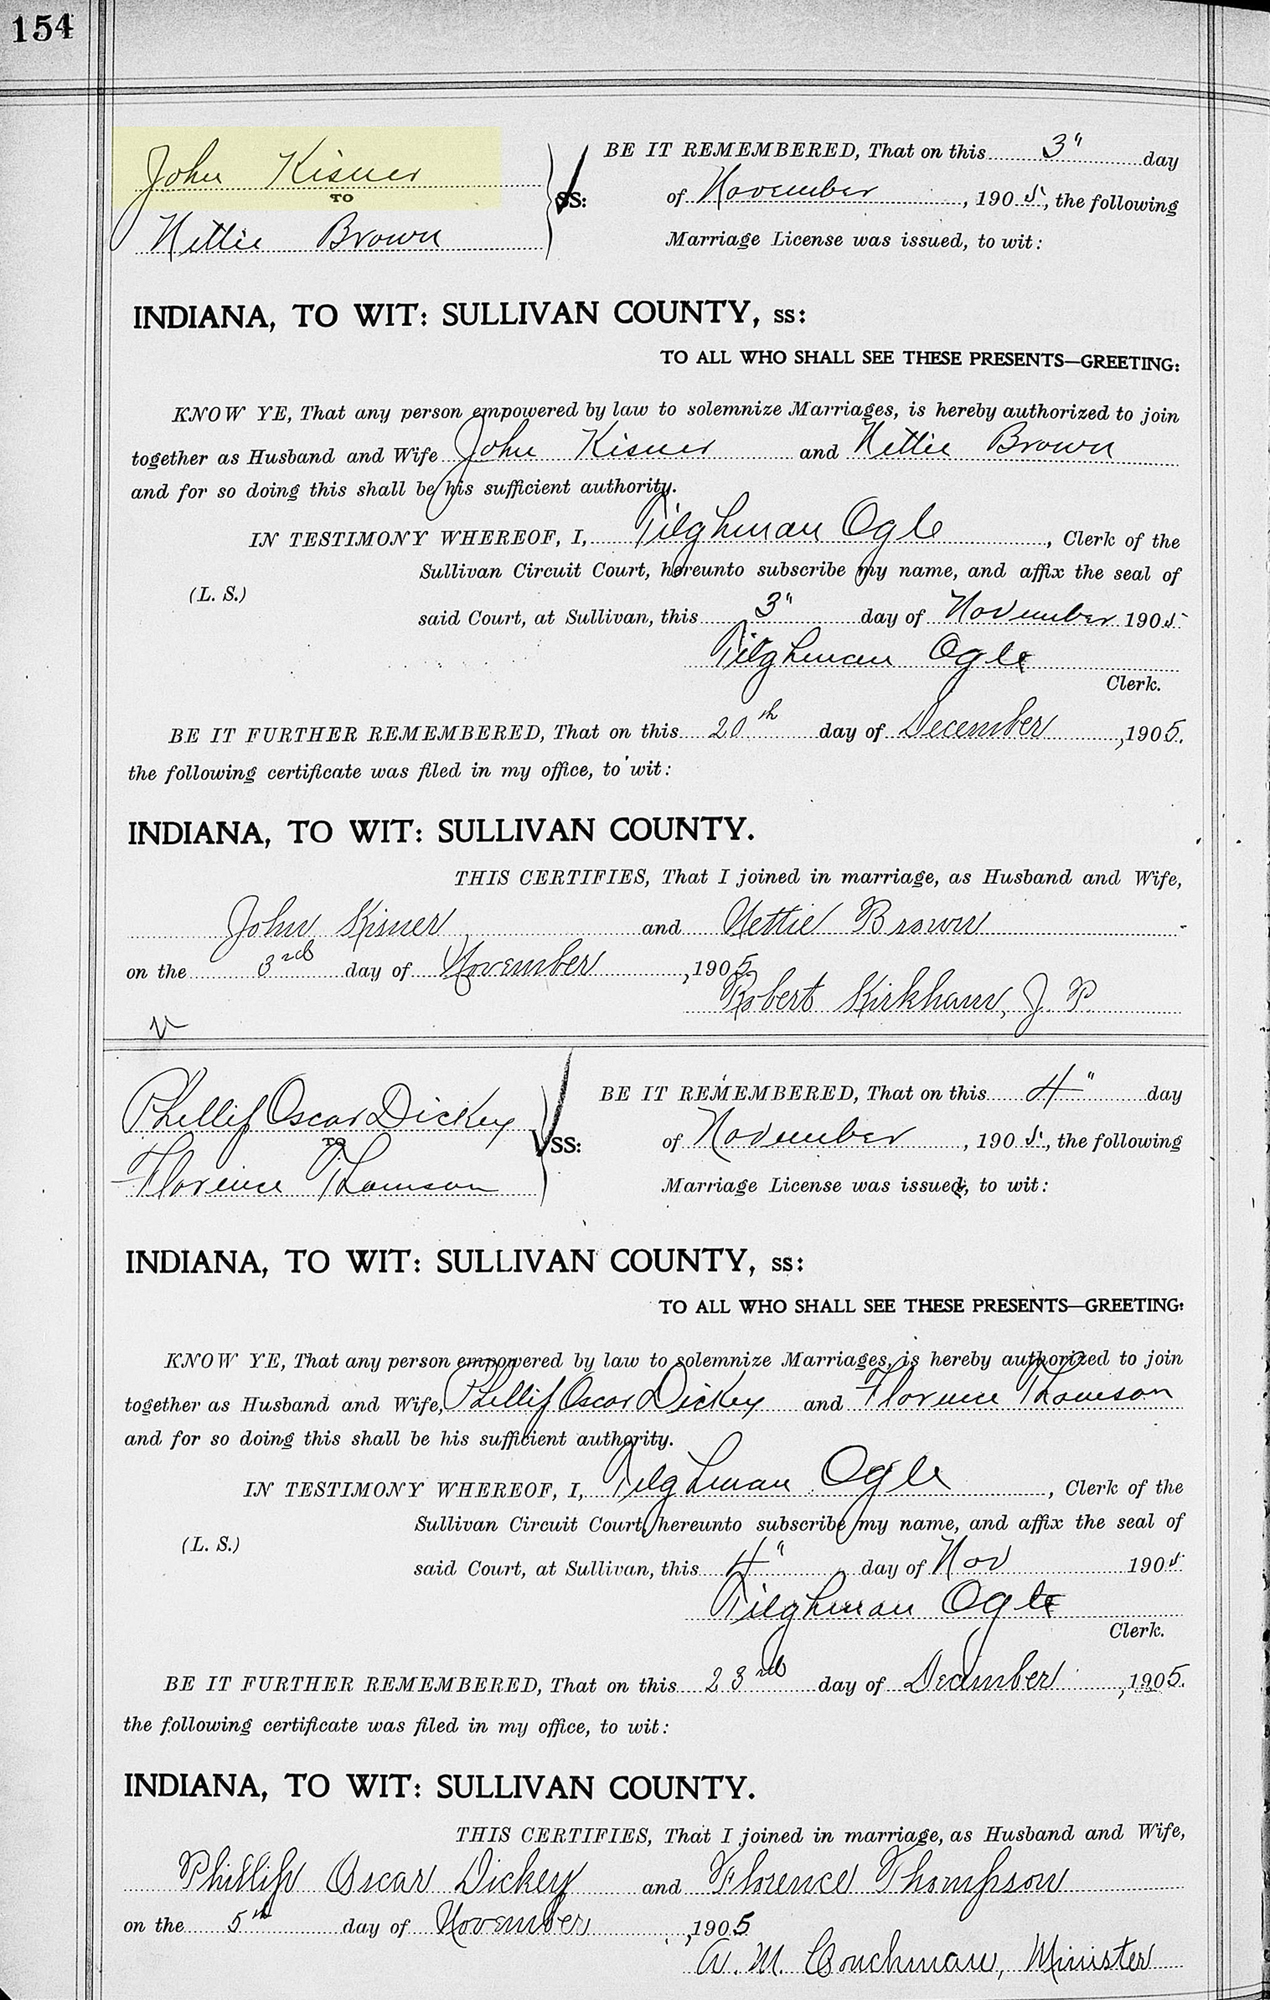 154
John Kisner
TO
Nettie Brown
SS:
BE IT REMEMBERED, That on this 3" day
of November, 1905, the following
Marriage License was issued, to wit:
INDIANA, TO WIT: SULLIVAN COUNTY, SS:
TO ALL WHO SHALL SEE THESE PRESENTS—GREETING:
KNOW YE, That any person empowered by law to solemnize Marriages, is hereby authorized to join
together as Husband and Wife John Kisner and Nettie Brown
and for so doing this shall be his sufficient authority.
IN TESTIMONY WHEREOF, I, Tilghman Ogle, Clerk of the
Sullivan Circuit Court, hereunto subscribe my name, and affix the seal of
(L. S.)
said Court, at Sullivan, this 3" day of November 1905
Tilghman Ogle
Clerk.
BE IT FURTHER REMEMBERED, That on this 20th day of December, 1905.
the following certificate was filed in my office, to wit:
INDIANA, TO WIT: SULLIVAN COUNTY.
THIS CERTIFIES, That I joined in marriage, as Husband and Wife,
John Kisner and Nettie Brown
on the 3rd day of November, 1905
Robert Kirkham, J. P.
Phillip Oscar Dickey
TO
Florence Thomson
SS:
BE IT REMEMBERED, That on this 4" day
of November, 1905, the following
Marriage License was issued, to wit:
INDIANA, TO WIT: SULLIVAN COUNTY, SS:
TO ALL WHO SHALL SEE THESE PRESENTS—GREETING:
KNOW YE, That any person empowered by law to solemnize Marriages, is hereby authorized to join
together as Husband and Wife, Phillip Oscar Dickey and Florence Thomson
and for so doing this shall be his sufficient authority.
IN TESTIMONY WHEREOF, I, Tilghman Ogle, Clerk of the
Sullivan Circuit Court, hereunto subscribe my name, and affix the seal of
(L. S.)
said Court, at Sullivan, this 4" day of Nov 1905
Tilghman Ogle
Clerk.
BE IT FURTHER REMEMBERED, That on this 23rd day of December, 1905.
the following certificate was filed in my office, to wit:
INDIANA, TO WIT: SULLIVAN COUNTY.
THIS CERTIFIES, That I joined in marriage, as Husband and Wife,
Phillip Oscar Dickey and Florence Thompson
on the 5th day of November, 1905
M. Couchman, Minister